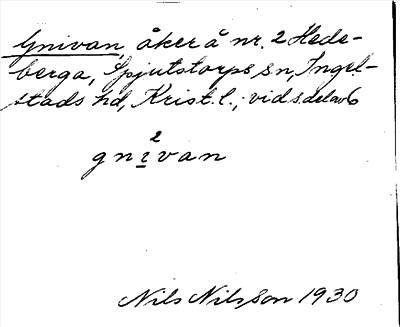 Gnivan, åker å nr. 2 Hede-
berga, Spjutstorps sn, Ingel-
stads hd, Krist. l.; vid s. delav 6
2
gnivan
Nils Nilsson 1930